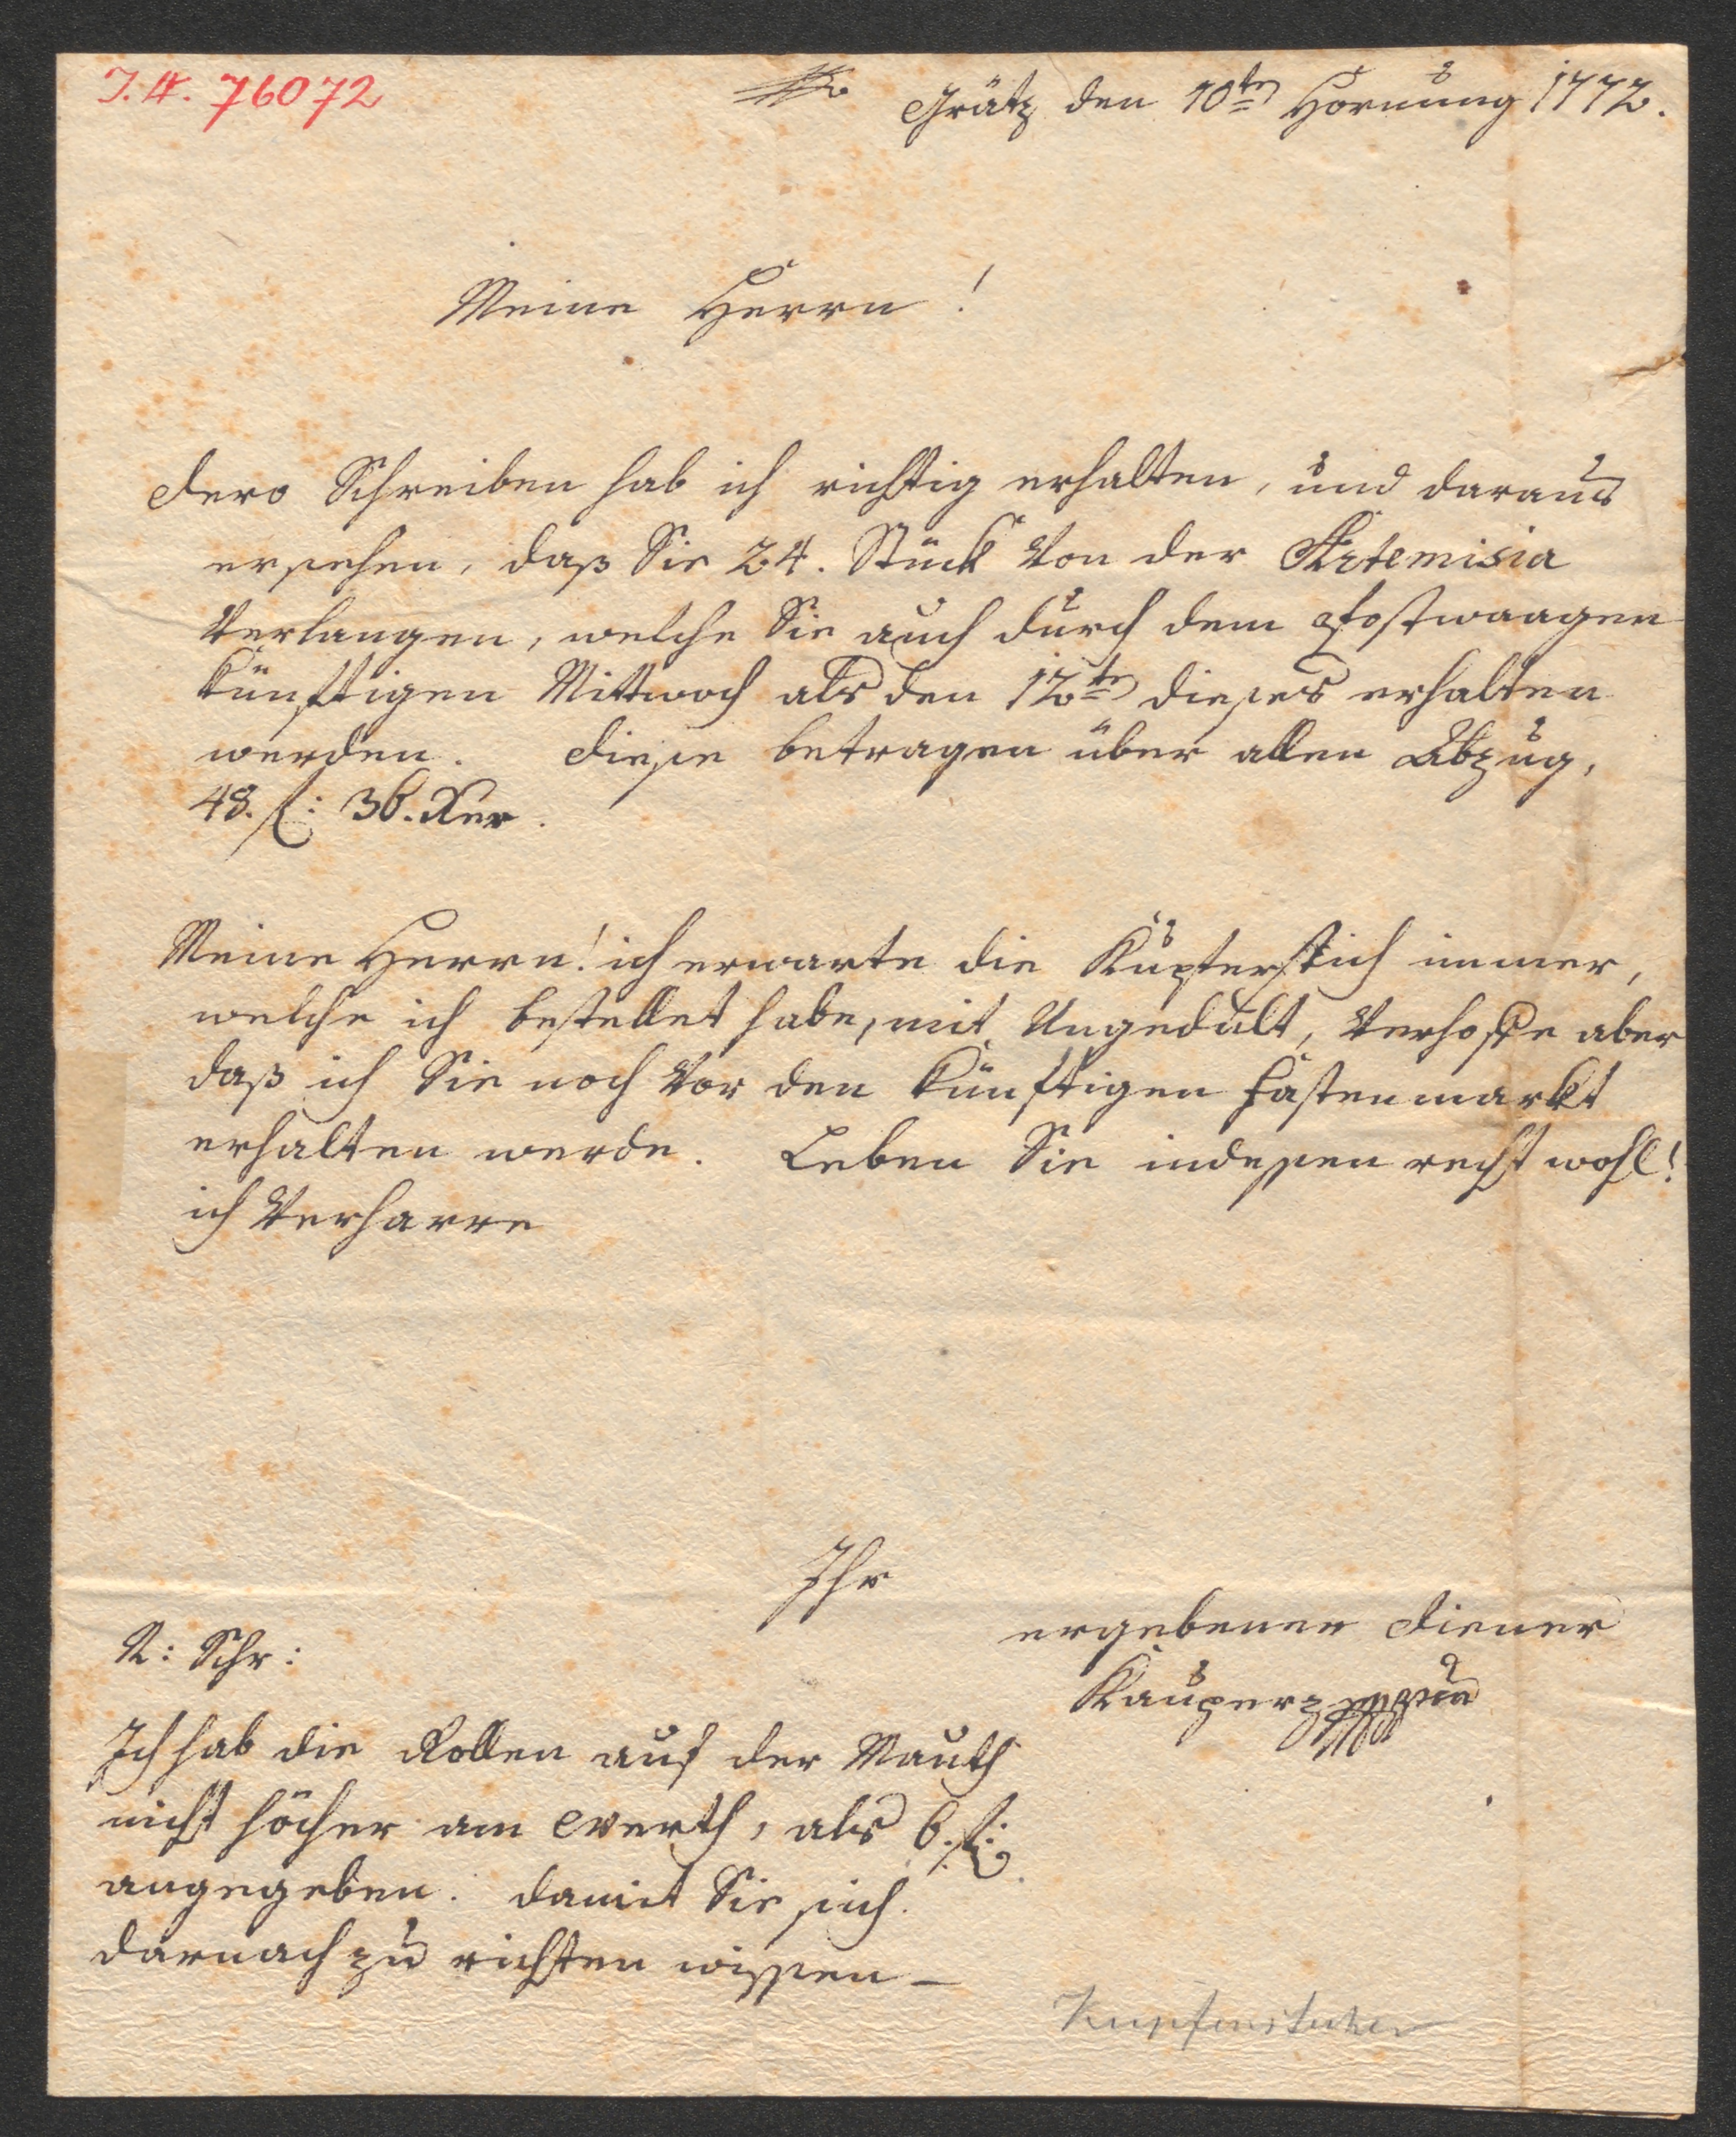 J.N. 76072
Grätz den 10ten Hornung 1772.
Meine Herrn!
Dero Schreiben hab ich richtig erhalten, und daraus
ersehen, daß Sie 24. Stück von der Artemisia
verlangen, welche Sie auch durch dem Postwaagen
künftigen Mittwoch als den 12ten dieses erhalten
werden. Diese betragen über allen Abzug,
48. f: 36. Xer.
Meine Herrn! ich erwarte die Kupferstich immer,
welche ich bestellet habe, mit Ungedult, verhoffe aber
daß ich Sie noch vor den künftigen Fastenmarkt
erhalten werde. Leben Sie indessen recht wohl!
ich verharre
Ihr
ergebener Diener
Kauperz
N: Schr:
Ich hab die Rollen auf der Mauth
nicht höcher am Werth, als 6. f:
angegeben. damit Sie sich
darnach zu richten wissen –
Kupferstecher